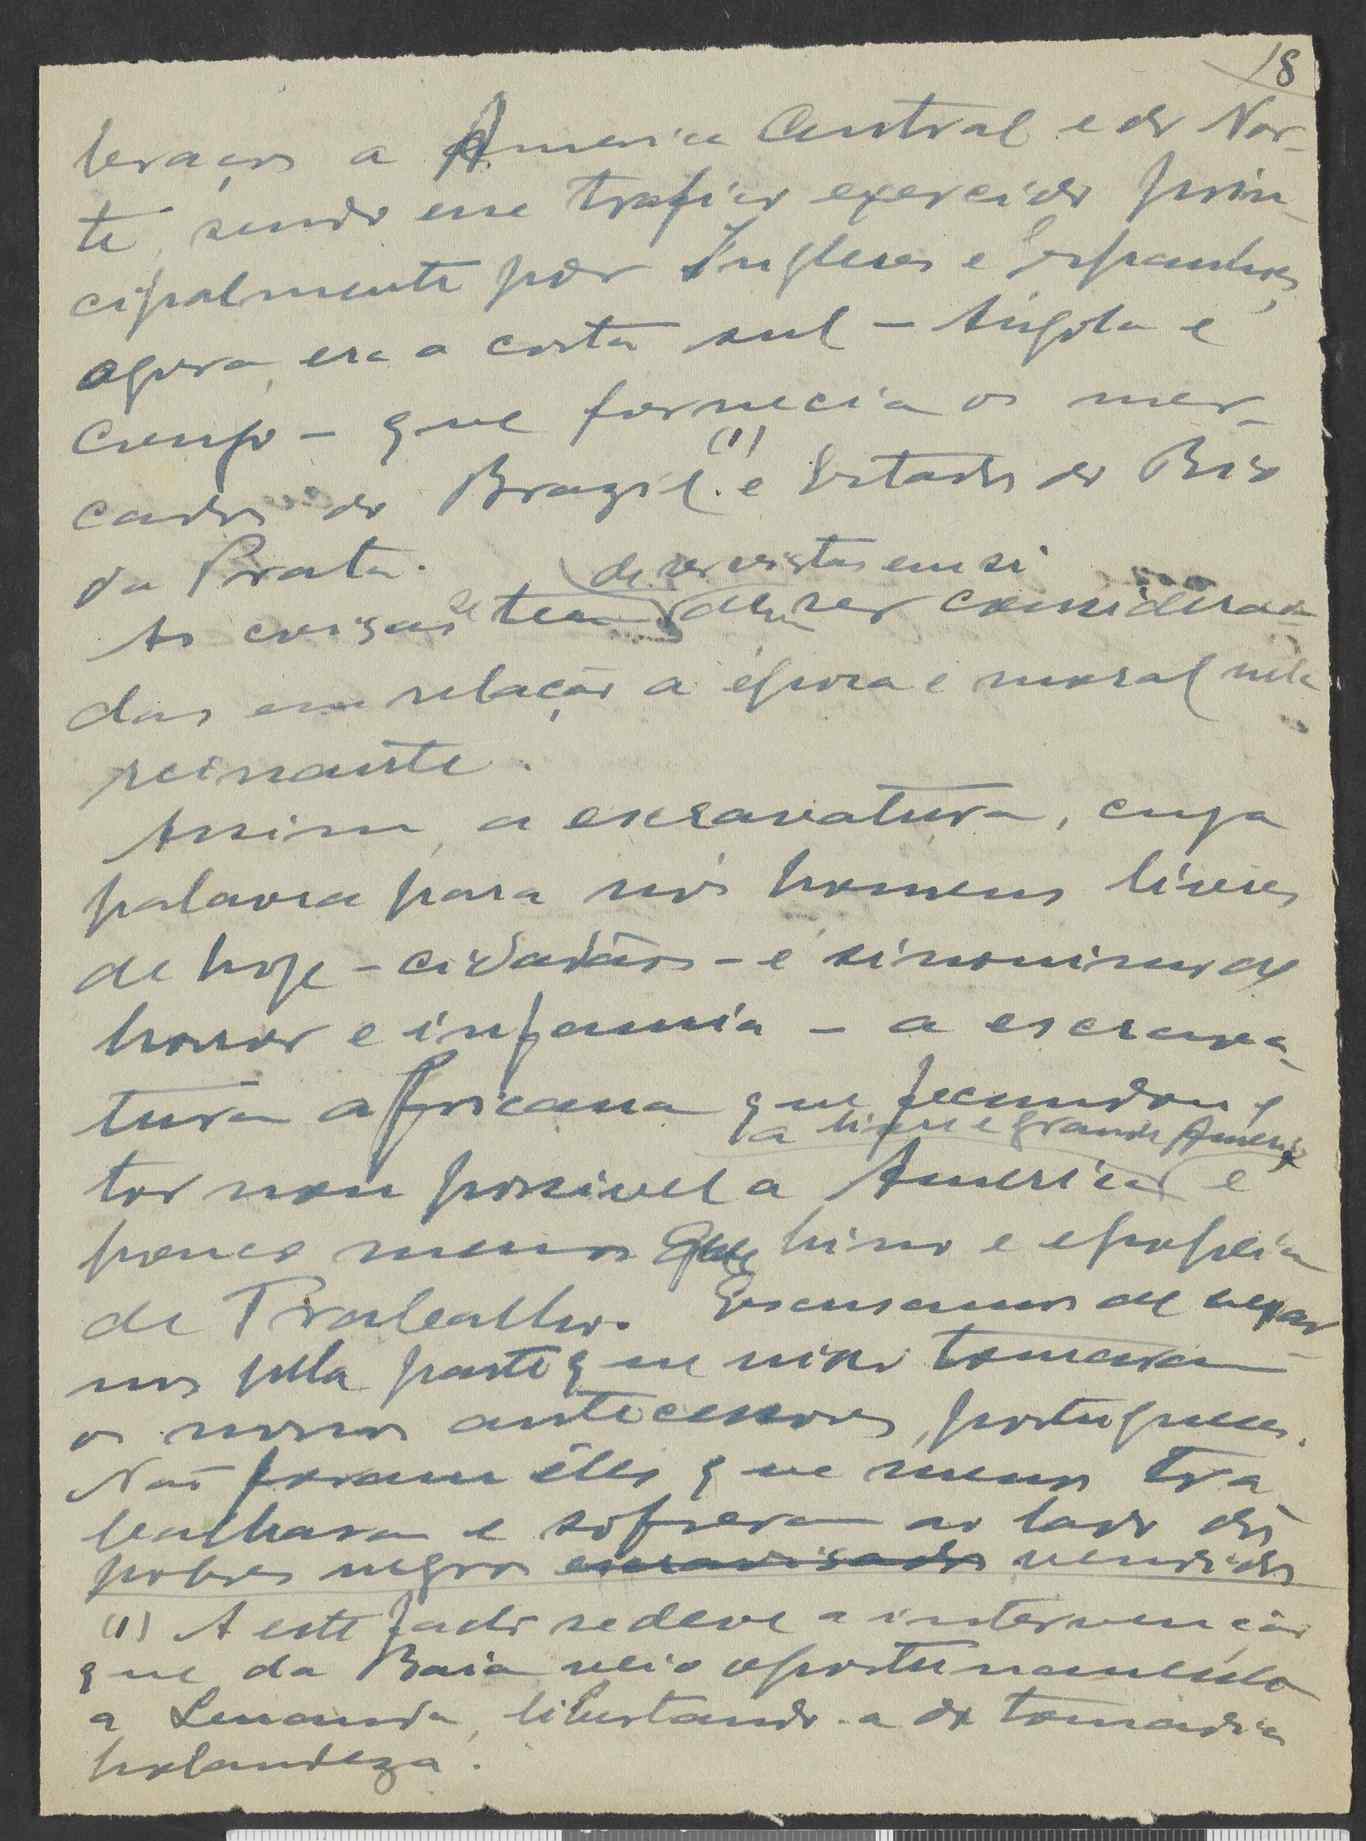 18
braços a America Central e do Nor-
te, sendo esse trafico exercido prin-
cipalmente por Ingleses e Espanhoes,
agora, era a costa sul – Angola e
Congo – que fornecia os mer-
cados do Brazil (1) e Estados do Rio
da Prata.
de ser vistas em si
As coisas teem de ser considera-
das em relação á época e moral nela
reinante.
Assim, a escravatura, cuja
palavra para nós homens livres
de hoje – cidadãos – é sinonimo de
horror e infamia – a escrava-
tura africana que fecundou e
a livre e grande America
tornou possivel a America é
pouco menos que hino e epopeia
de Trabalho. Escusamos de vexar-
nos pela parte que nisso tomaram
os nossos antecessores, portugueses.
Não foram êles que menos tra
balharam e sofreram ao lado dos
pobres negros escravisados vendidos
(1) A este facto se deve a intervenção
que da Baia veio oportunamente
a Luanda, libertando-a da tomadia
holandeza.